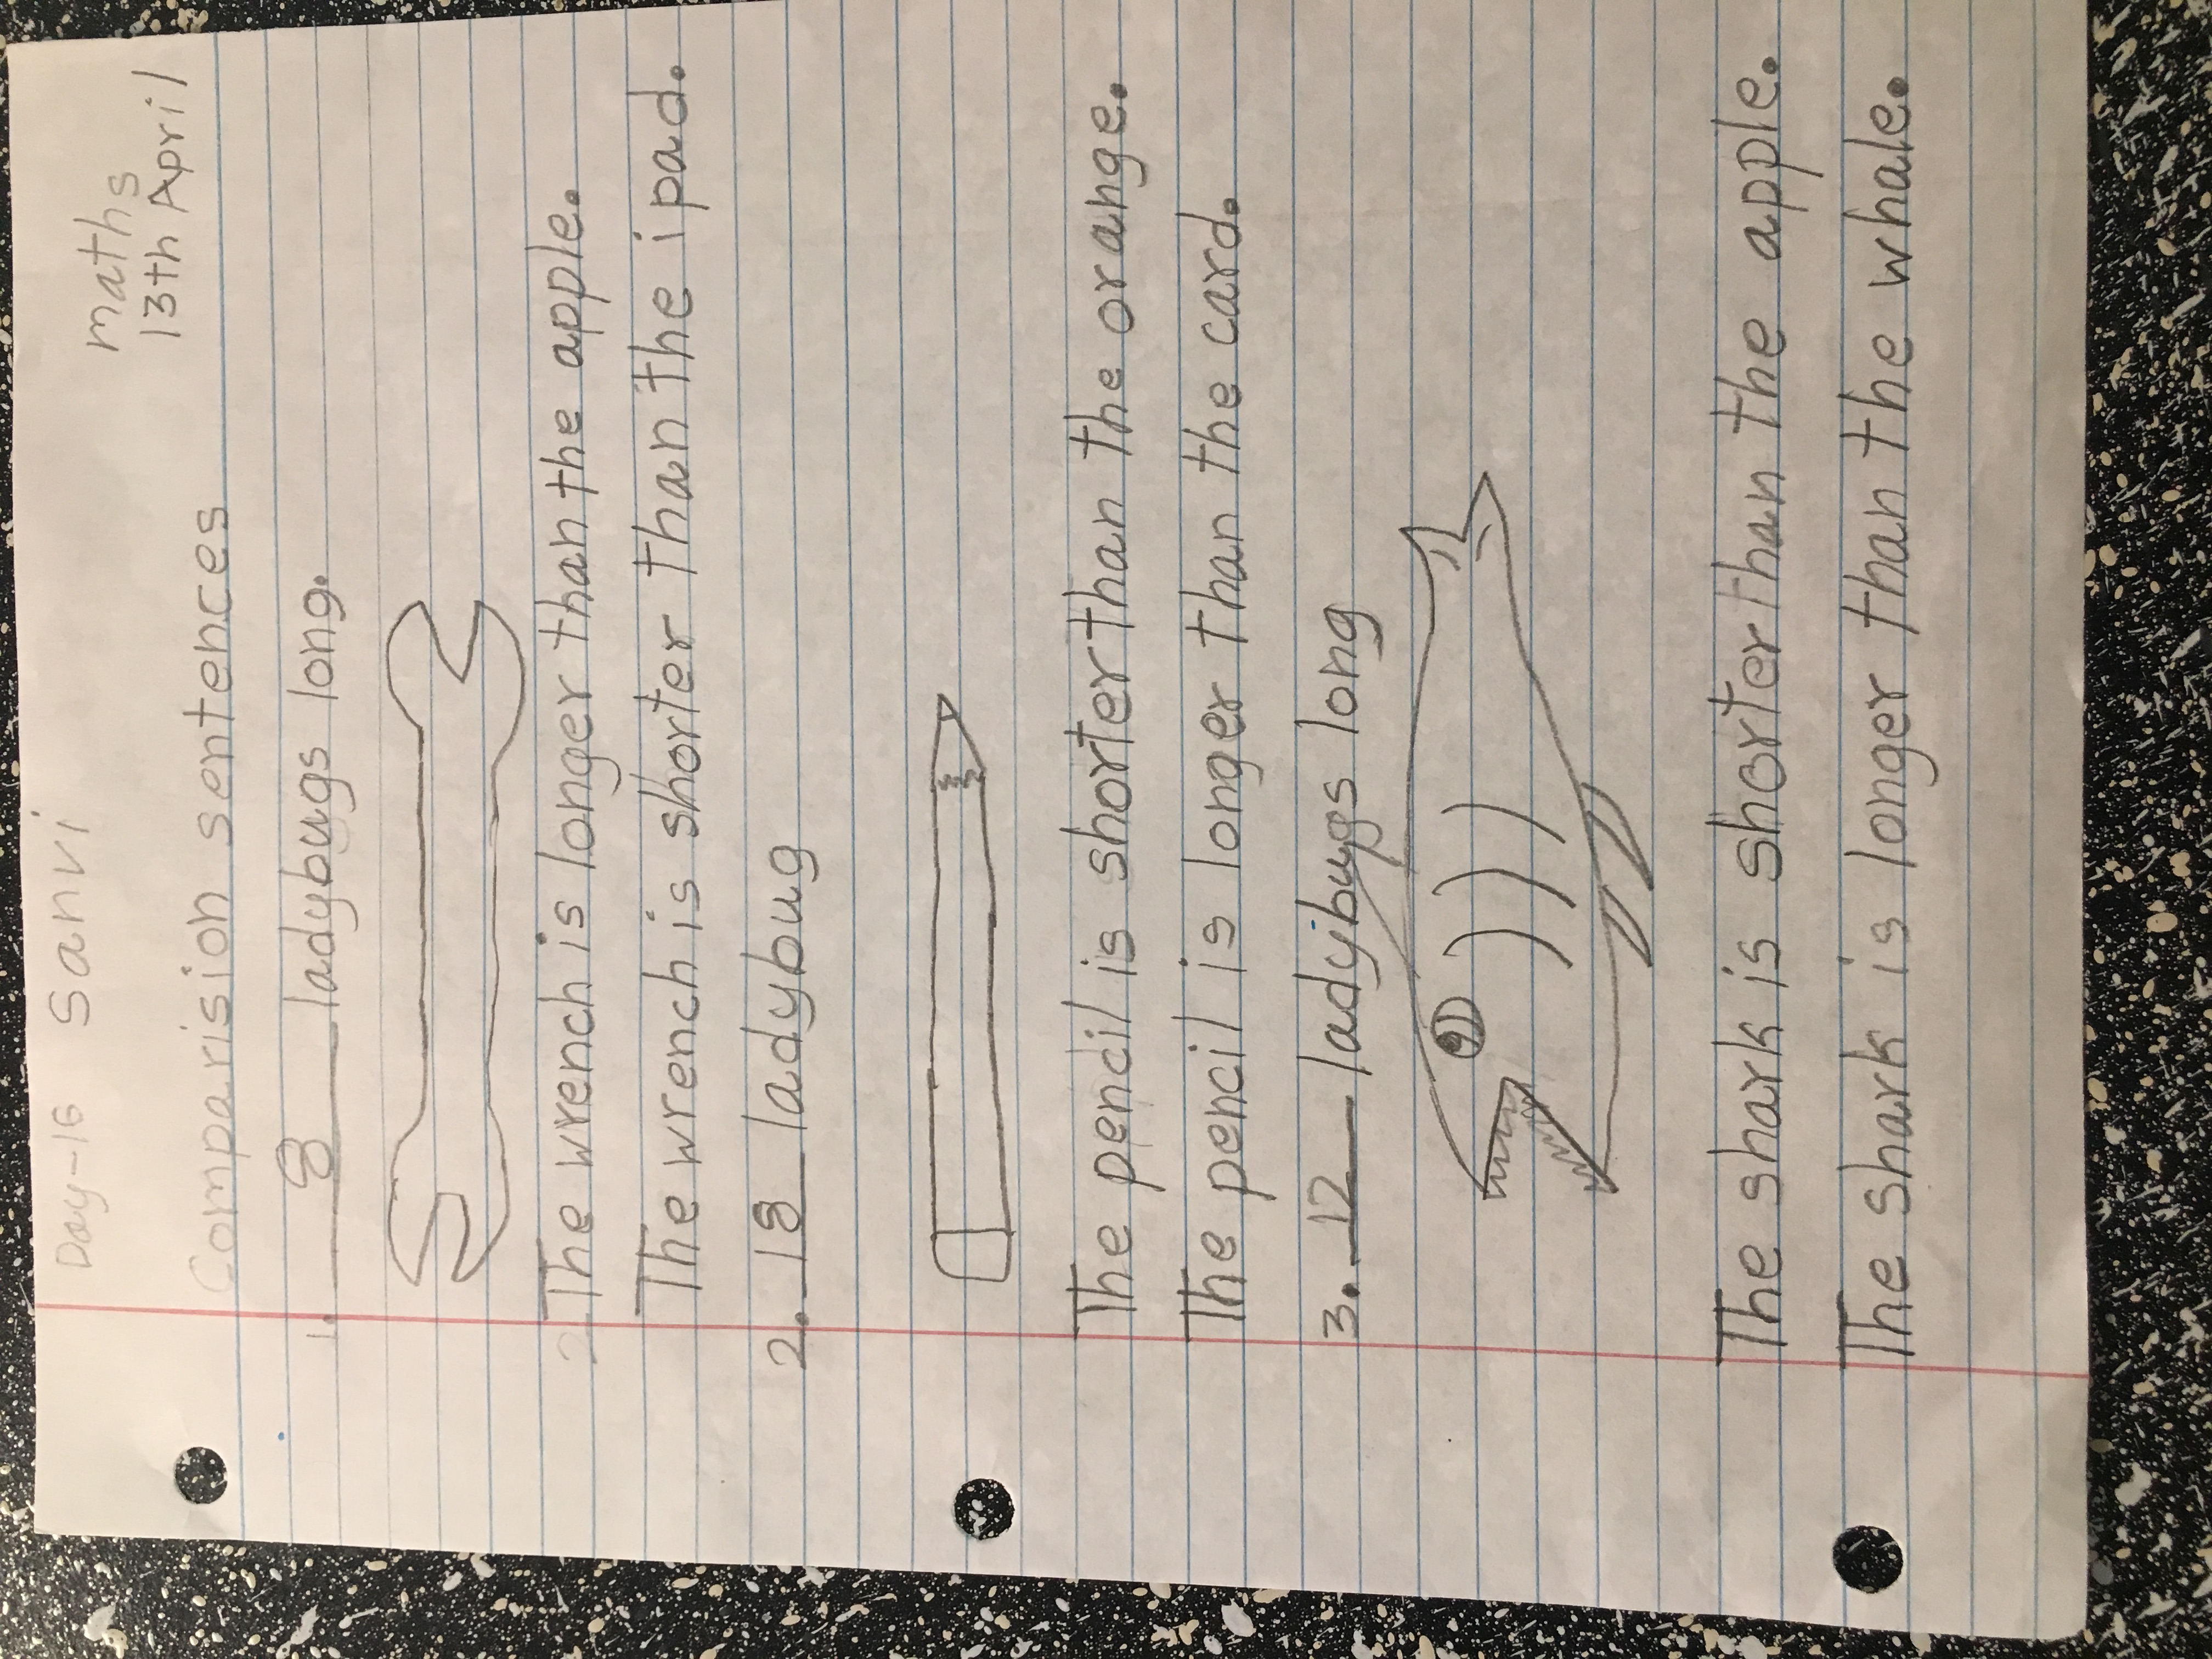 Day-16 Sanvi
maths
13th April
Comparision sentences
1. 8 ladybugs long.
2 The wrench is longer than the apple.
The wrench is shorter than the ipad.
2. 18 ladybug
The pencil is shorter than the orange.
The pencil is longer than the card.
3. 12 ladybugs long
The shark is shorter than the apple.
The shark is longer than the whale.